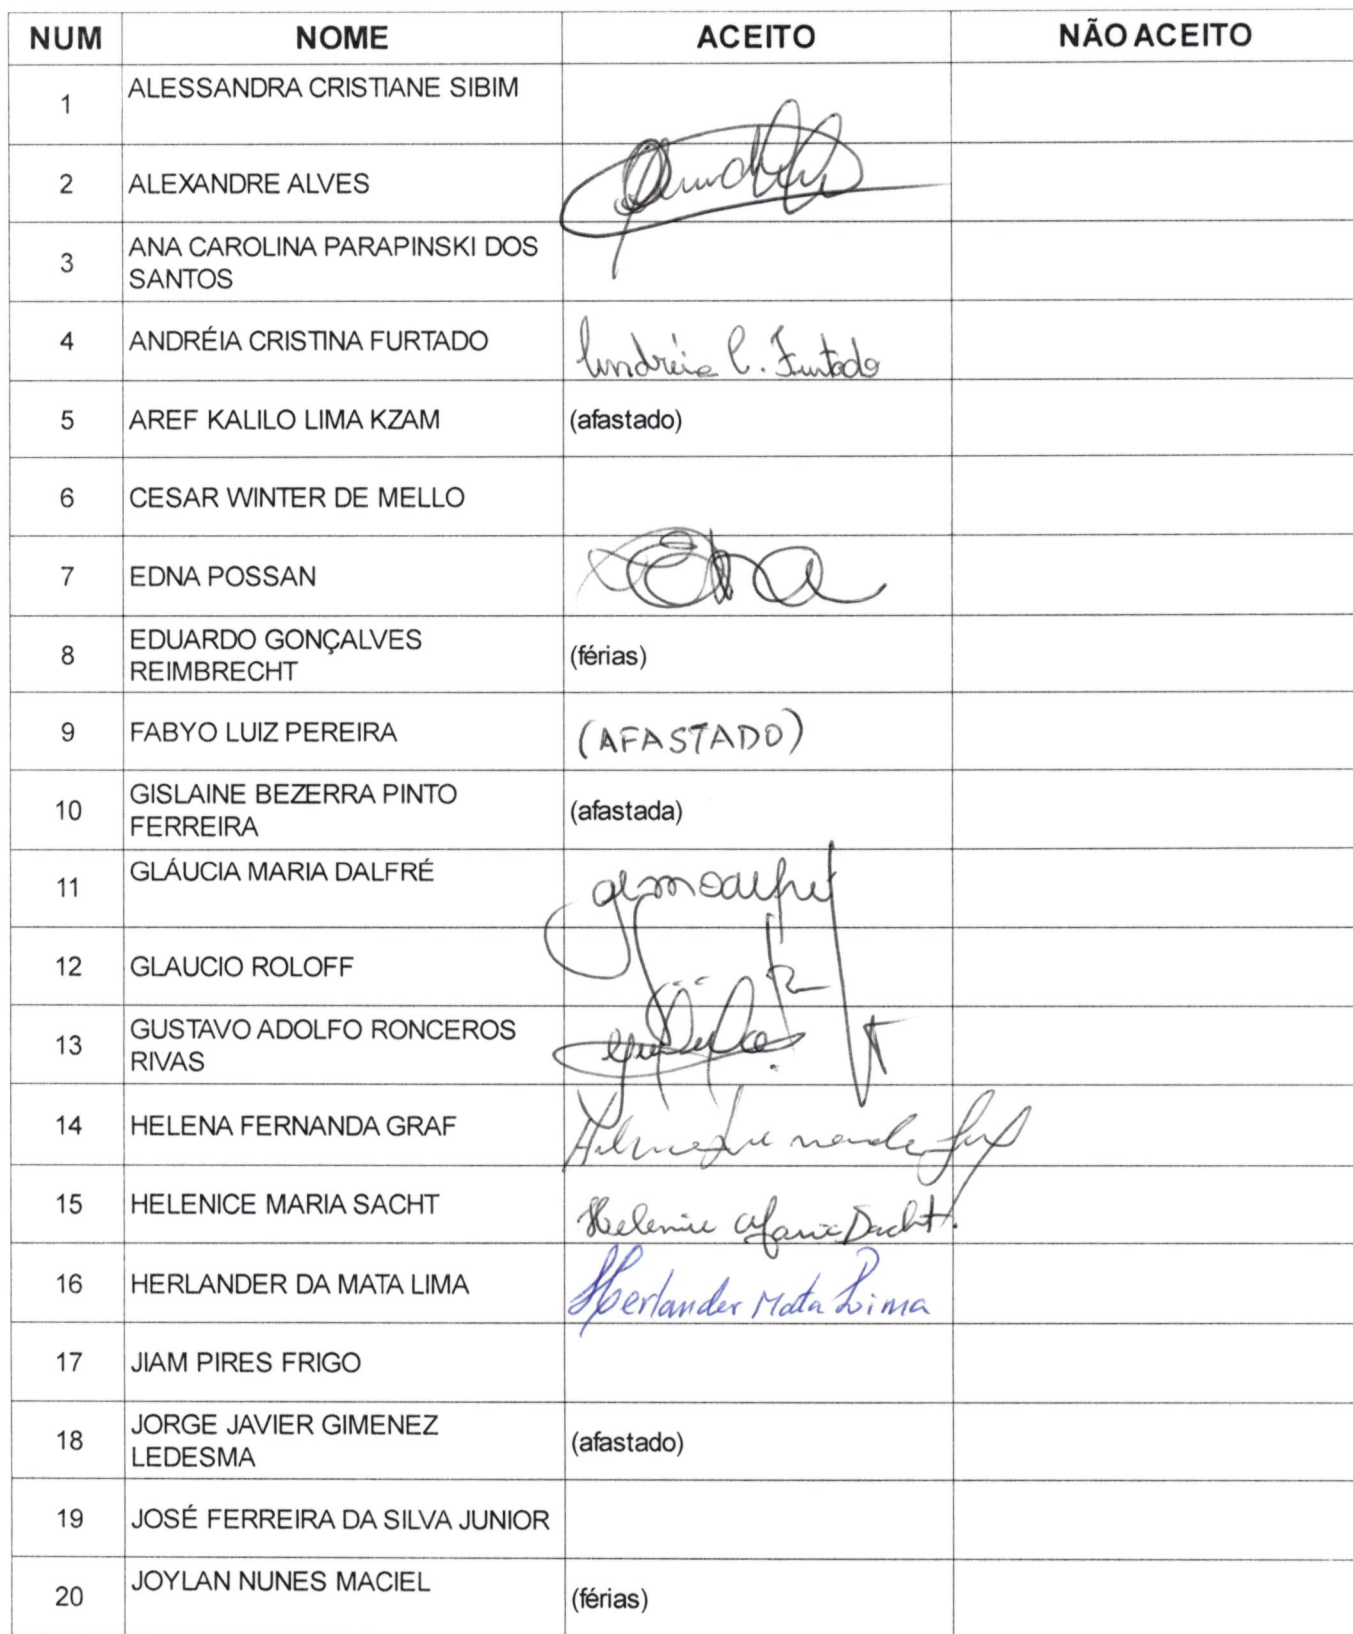 NUM NOME ACEITO NÃO ACEITO
1 ALESSANDRA CRISTIANE SIBIM
2 ALEXANDRE ALVES
3 ANA CAROLINA PARAPINSKI DOS
SANTOS
4 ANDRÉIA CRISTINA FURTADO Andréia C. Furtado
5 AREF KALILO LIMA KZAM (afastado)
6 CESAR WINTER DE MELLO
7 EDNA POSSAN Edna
8 EDUARDO GONÇALVES
REIMBRECHT (férias)
9 FABYO LUIZ PEREIRA (AFASTADO)
10 GISLAINE BEZERRA PINTO
FERREIRA (afastada)
11 GLÁUCIA MARIA DALFRÉ
12 GLAUCIO ROLOFF
13 GUSTAVO ADOLFO RONCEROS
RIVAS
14 HELENA FERNANDA GRAF Helena Fernanda Graf
15 HELENICE MARIA SACHT Helenice Maria Sacht
16 HERLANDER DA MATA LIMA Herlander Mata Lima
17 JIAM PIRES FRIGO
18 JORGE JAVIER GIMENEZ
LEDESMA (afastado)
19 JOSÉ FERREIRA DA SILVA JUNIOR
20 JOYLAN NUNES MACIEL (férias)